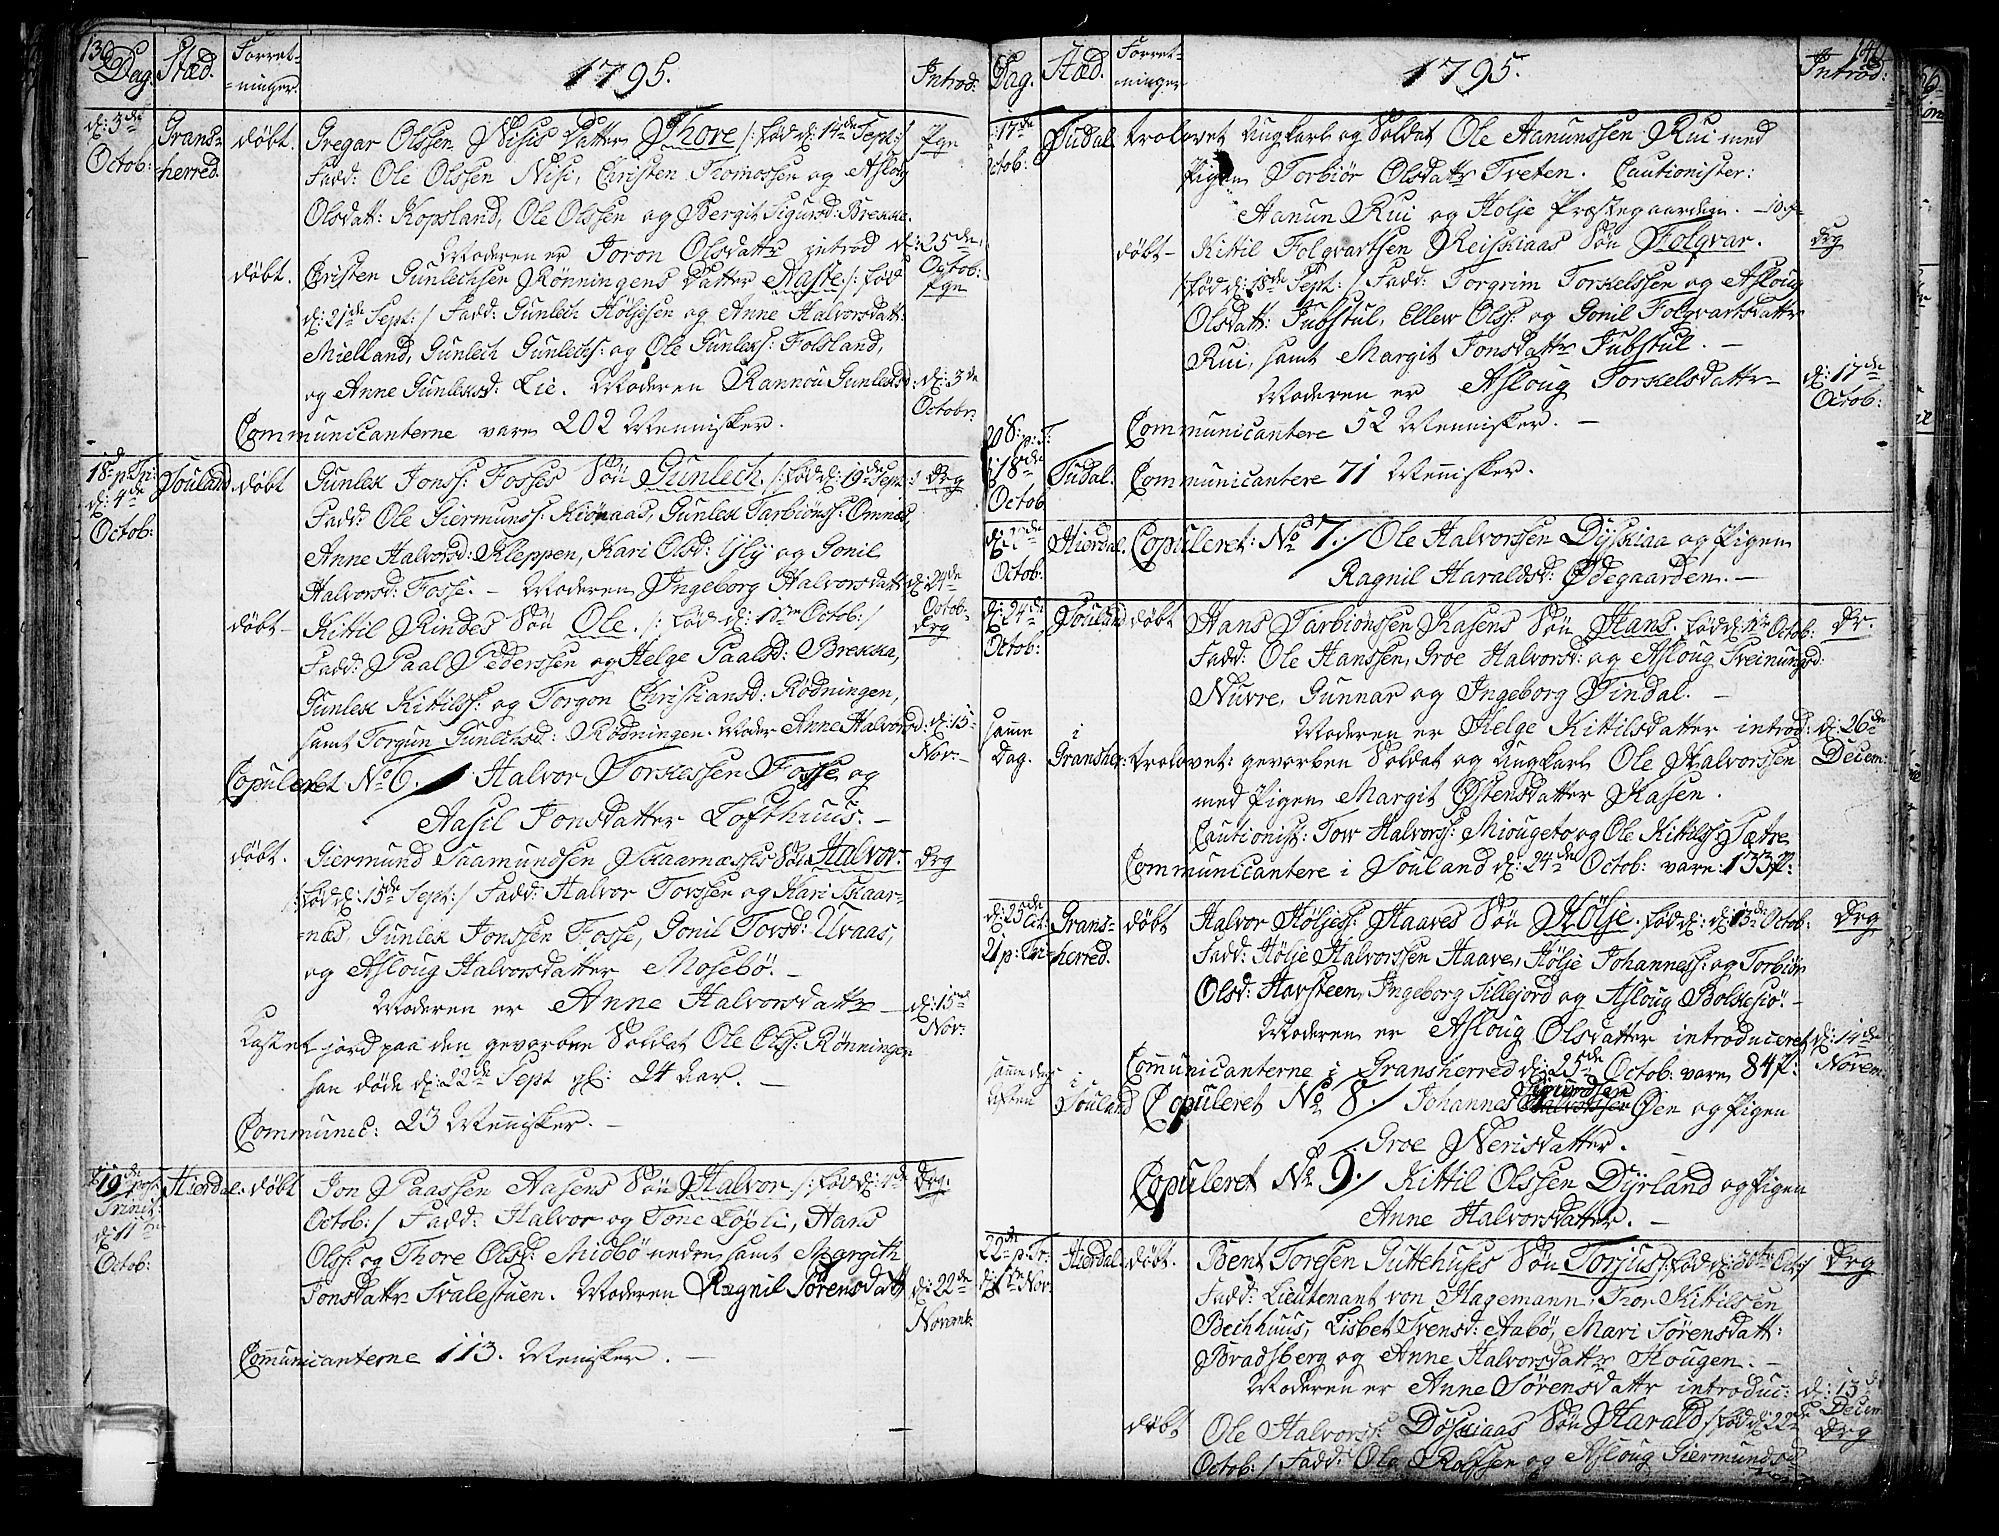 139
Dag. Stæd. Forret-
-ninger. 1795. Introd:
d: 3de Grans- døbt. Gregar Olssen Nisis Datter Thore /: fød d: 14de Sept:/ Pge
Octob: herred. Fadd: Ole Olssen Nisi, Christen Tromossen og Asloug
Olsdatt: Kopsland, Ole Olssen og Bergit Sigursd: Brekke.
Moderen er Joron Olsdattr introd d: 25de
Octob:
døbt. Christen Gunlechsen Rønningens Datter Aaste /: fød Pge
d: 21de Sept: / Fadd: Gunlech Høljesen og Anne Halvorsdatt:
Mielland, Gunlech Gunlechs: og Ole Gunleks: Folsland,
og Anne Gunleksd: Lie. Moderen Rannou Gunleksd: d: 3de
Octobr:
Communicanterne vare 202 Mennisker.
18de p. Tri: Souland døbt Gunlek Jonss: Fosses Søn Gunlech. /: fød d: 19de Sept:/ Drg
d: 4de
Octob: Fadd: Ole Giermunss: Kiønaas, Gunlek Tarbiønss: Omnæs,
Anne Halvorsd: Kleppen, Kari Olsd: Ysly og Gonil
Halvorsd: Fosse. – Moderen Ingeborg Halvorsdattr d: 24de
Octob:
døbt – Kittil Rindes Søn Ole. /: fød d: 1ste Octob: / Drg
Fadd: Paal Pederssen og Helge Paalsd: Brekka,
Gunlek Kittilss: og Torgon Christiansd: Rødningen,
samt Torgun Gunlechsd: Rødningen. Moder Anne Halvorsd: d: 15
Nov:
Copuleret No 6. / Halvor Torkessen Fosse og
Aasil Jonsdatter Lofthuus. –
døbt. Giermund Saamundsen Skaarnæsses Søn Halvor. Drg
/: fød d: 15de Sept: / Fadd: Halvor Torssen og Kari Skaar-
-næs, Gunlek Jonssen Fosse, Gonil Torsd: Uraas,
og Asloug Halvorsdatter Mosebø. –
Moderen er Anne Halvorsdattr – d: 15de
Nov:
Kastet jord paa den gevorbne Soldat Ole Olss: Rønningen
han døde d: 22de Sept gl: 24 Aar. –
Communic: 23 Mennisker. –
19de post Hierdal. døbt Jon Paassen Aasens Søn Halvor /: fød d: 1de Drg:
Trinit:
d: 11te
Octob: Octob: / Fadd: Halvor og Tone Løyli, Hans
Olss: og Thore Olsd: Midbø neden, samt Margith
Jonsdattr Svalestuen. Moderen Ragnil Sørensdatt d: 22de
Novemb:
Communicanterne 113. Menisker. –
140
Dag. Stæd. Forret-
ninger 1795. Introd:
17de Tudal trolovet Ungkarl og Soldat Ole Aanunssen Rui med
Octob: Pigen Torbiør Olsdattr Treten. Cautionister:
Aanun Rui og Holje Præstegaarden.
døbt – Kittil Folgvartsen Reiskiaas Søn Folgvar. Drg
/: fød d: 18de Sept: / Fadd: Torgrim Torkelssen og Asloug
Olsdatt: Jubstul, Ellew Olss: og Gonil Folgvartsdattr
Rui, samt Margit Jonsdattr Jubstul. –
Moderen er Asloug Torkelsdattr – d: 17de
Octob:
Communicantere 52 Mennisker. –
20de p: T:
d: 18de Tudal. Communicantere 71 Menisker.
Octob
Hierdal. Copuleret: No 7. / Ole Halvorssen Dyskiaa og Pigen
Octob: Ragnil Haraldsd: Ødegaarden. –
d: 24de Souland døbt Hans Tarbiønssen Kasens Søn Hans. fød d: 1te Octob: Dr.
Octob: Fadd: Ole Hanssen, Groe Halvorsd: og Asloug Sveinungsd:
Nuvre, Gunnar og Ingeborg Findal. –
Moderen er Helge Kittilsdatter introd: d: 26de
Decem:
samme i
Dag. Gransher: trolovet: gevorben Soldat og Ungkarl Ole Halvorssen
med Pigen Margit Østensdatter Kasen.
Cautionist: Tow Halvorss: Miougeto og Ole Kittilss: Sætre
Communicantere i Souland d: 24de Octob: vare: 133 P:
d: 25de Oct: Grans- døbt Halvor Høljess: Haaves Søn Hølje. fød d: 13de Octob: Drg
21 p: Tri- herred. Fadd: Hølje Halvorssen Haave, Hølje Johanness: og Torbiør
Olsd: Havsteen, Ingeborg Sillejord og Asloug Bolkesiø. –
Moderen er Asloug Olsdatter introduceret d: 14de
Novem:
Communicanterne i Gransherred d: 25de Octob: vare 84 P:
samme dag i
Aften Souland Copuleret No 8. / Johannes Sigurdsen Øen og Pigen
Groe Nerisdatter. –
Copuleret No 9. / Kittil Olssen Dyrland og Pigen
Anne Halvorsdatter. –
22de p. Tr: Hierdal. døbt. Bent Toresen Guttehuses Søn Torjus /: fød d: 30te Octob/ Drg
d: 1te Nov: Fadd: Lieutenant von Hagemann, Tron Kittilssen
Bechhuus, Lisbet Svensd: Aabø, Mari Sørensdatt:
Bradsberg og Anne Halvorsdattr Hougen. –
Moderen er Anne Sørensdattr introduc: d: 13de
Decem:
døbt Ole Halvorss: Døskiaas Søn Harald /: fød d: 22de Drg
Octob: / Fadd: Ole Rolfsen og Asloug Giermundsd: